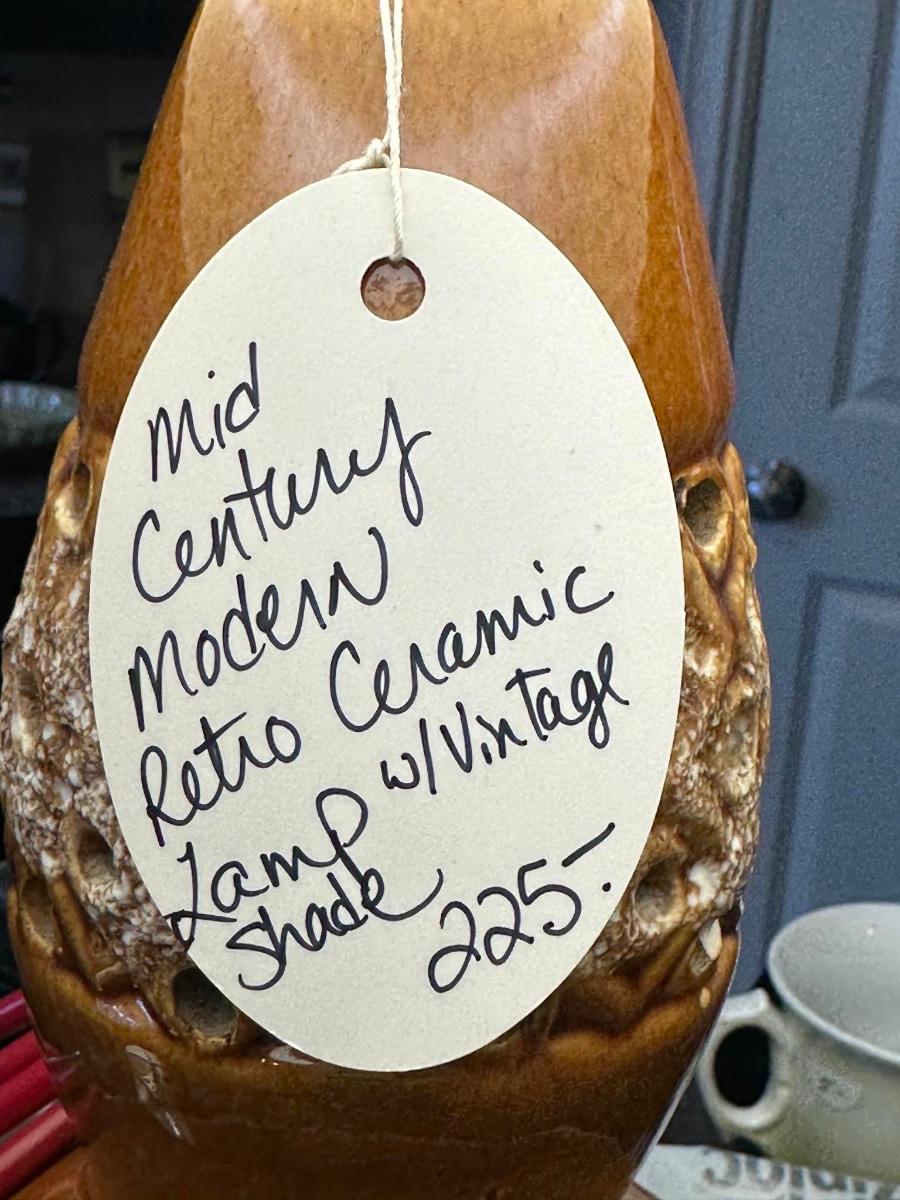 Mid
Century
Modern
Retro Ceramic
Lamp w/Vintage
Shade 225.-